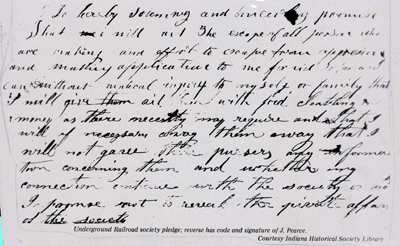 Do hereby solemnly and sincerely promise
That I will aid the escape of all persons who
are making and effort to escape from oppression
and making application to me for aid
can without material injury to myself or family that
I will give them aid him with food Clothing
money as there necessity may require and that I
will if necessary them away that I
will not gave their pursers any informa
tion concerning them and whether my
connection continue with the society or not
I promise not to reveal the private affairs
of the society
Underground Railroad society pledge; reverse has code and signature of J. Pearce.
Courtesy Indiana Historical Society Library